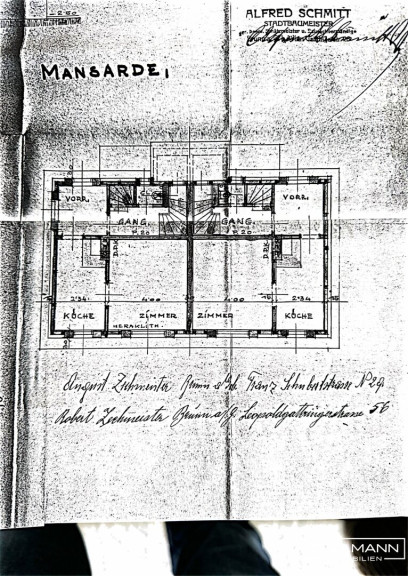 ALFRED SCHMITT
STADTBAUMEISTER
MANSARDE,
VORR.
VORR.
GANG.
GANG.
2.34
4.00
4.00
2.34
KÜCHE
ZIMMER
ZIMMER
KÜCHE
HERAKLITH.
August Zechmeister Brunn a/Geb Franz Schubertstrasse No 29
Robert Zechmeister Brunn a/G. Leopoldgattringerstrasse 56
MANN
BILIEN